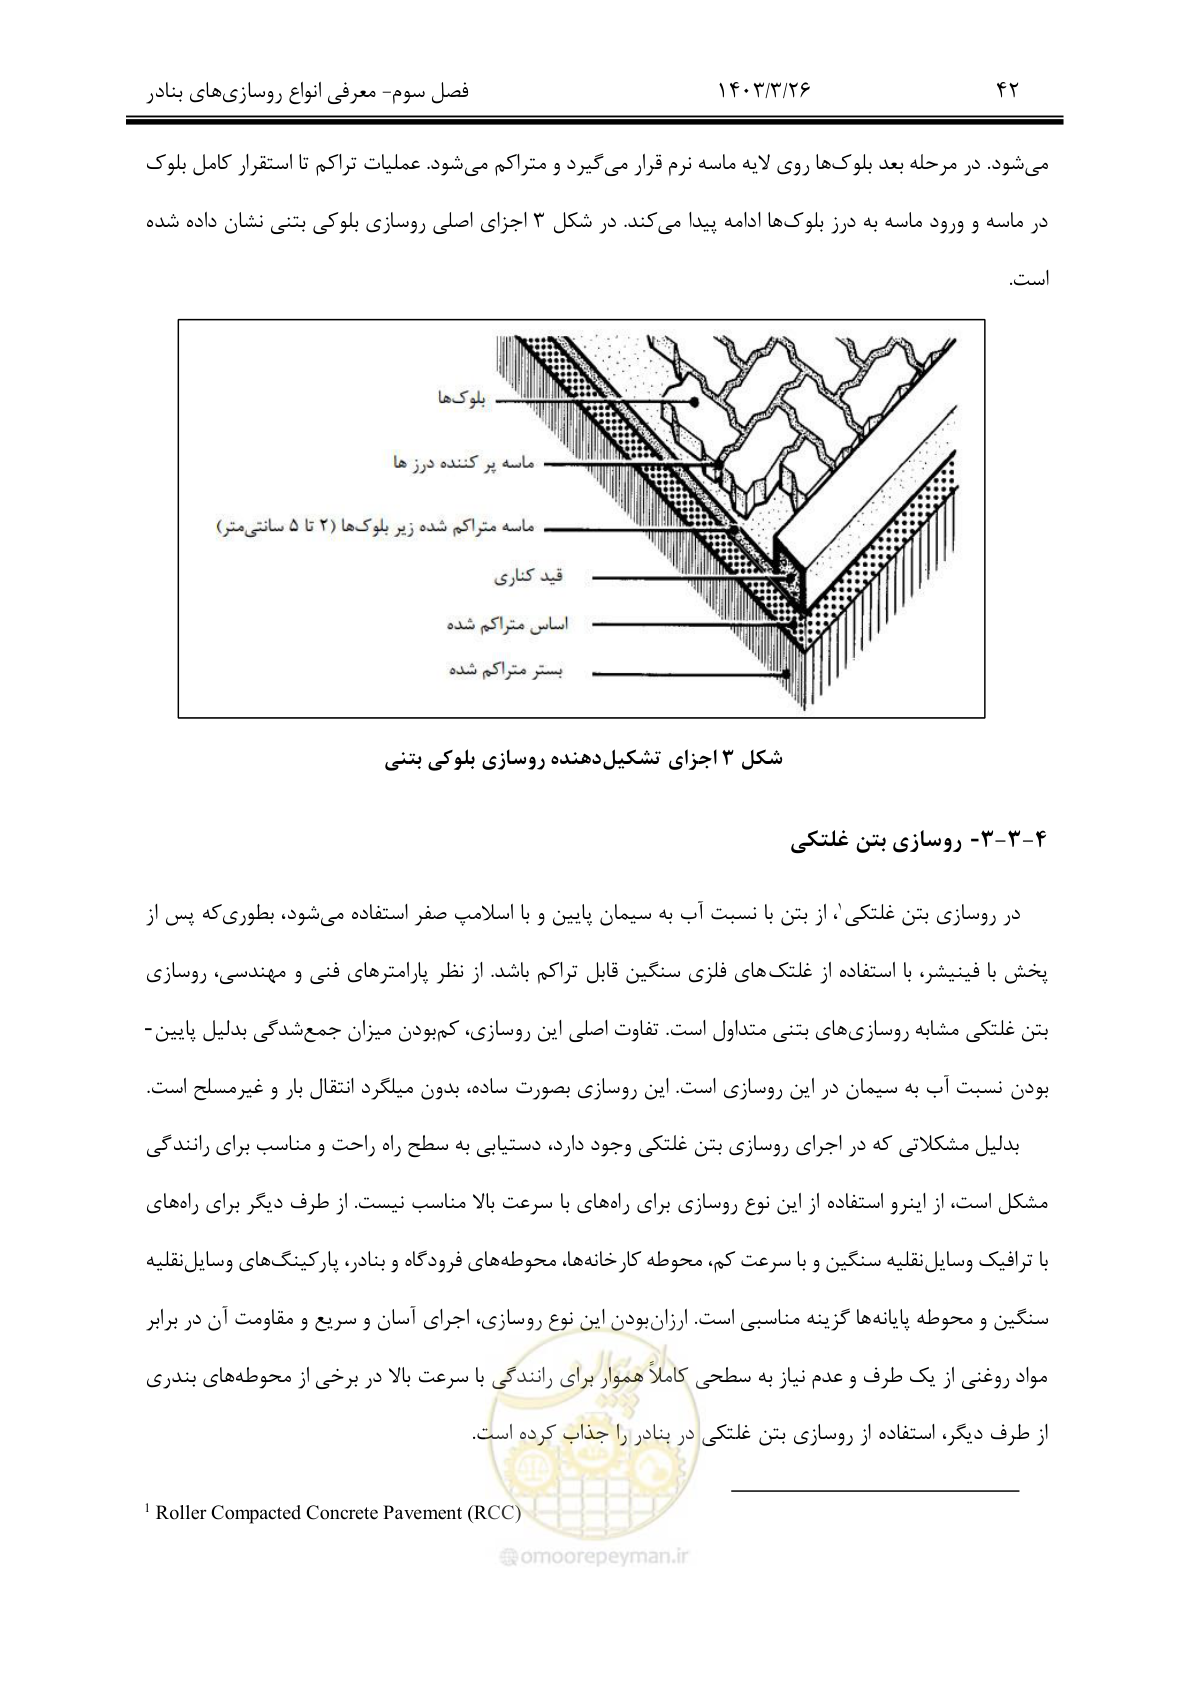 فصل سوم- معرفی انواع روسازی‌های بنادر ۱۴۰۳/۳/۲۶ ۴۲
می‌شود. در مرحله بعد بلوک‌ها روی لایه ماسه نرم قرار می‌گیرد و متراکم می‌شود. عملیات تراکم تا استقرار کامل بلوک
در ماسه و ورود ماسه به درز بلوک‌ها ادامه پیدا می‌کند. در شکل ۳ اجزای اصلی روسازی بلوکی بتنی نشان داده شده
است.
بلوک‌ها
ماسه پر کننده درز ها
ماسه متراکم شده زیر بلوک‌ها (۲ تا ۵ سانتی‌متر)
قید کناری
اساس متراکم شده
بستر متراکم شده
شکل ۳ اجزای تشکیل‌دهنده روسازی بلوکی بتنی
۳-۳-۴- روسازی بتن غلتکی
در روسازی بتن غلتکی۱، از بتن با نسبت آب به سیمان پایین و با اسلامپ صفر استفاده می‌شود، بطوری‌که پس از
پخش با فینیشر، با استفاده از غلتک‌های فلزی سنگین قابل تراکم باشد. از نظر پارامترهای فنی و مهندسی، روسازی
بتن غلتکی مشابه روسازی‌های بتنی متداول است. تفاوت اصلی این روسازی، کم‌بودن میزان جمع‌شدگی بدلیل پایین-
بودن نسبت آب به سیمان در این روسازی است. این روسازی بصورت ساده، بدون میلگرد انتقال بار و غیرمسلح است.
بدلیل مشکلاتی که در اجرای روسازی بتن غلتکی وجود دارد، دستیابی به سطح راه راحت و مناسب برای رانندگی
مشکل است، از اینرو استفاده از این نوع روسازی برای راه‌های با سرعت بالا مناسب نیست. از طرف دیگر برای راه‌های
با ترافیک وسایل‌نقلیه سنگین و با سرعت کم، محوطه کارخانه‌ها، محوطه‌های فرودگاه و بنادر، پارکینگ‌های وسایل‌نقلیه
سنگین و محوطه پایانه‌ها گزینه مناسبی است. ارزان‌بودن این نوع روسازی، اجرای آسان و سریع و مقاومت آن در برابر
مواد روغنی از یک طرف و عدم نیاز به سطحی کاملاً هموار برای رانندگی با سرعت بالا در برخی از محوطه‌های بندری
از طرف دیگر، استفاده از روسازی بتن غلتکی در بنادر را جذاب کرده است.
1 Roller Compacted Concrete Pavement (RCC)
امور پیمان
@omoorepeyman.ir